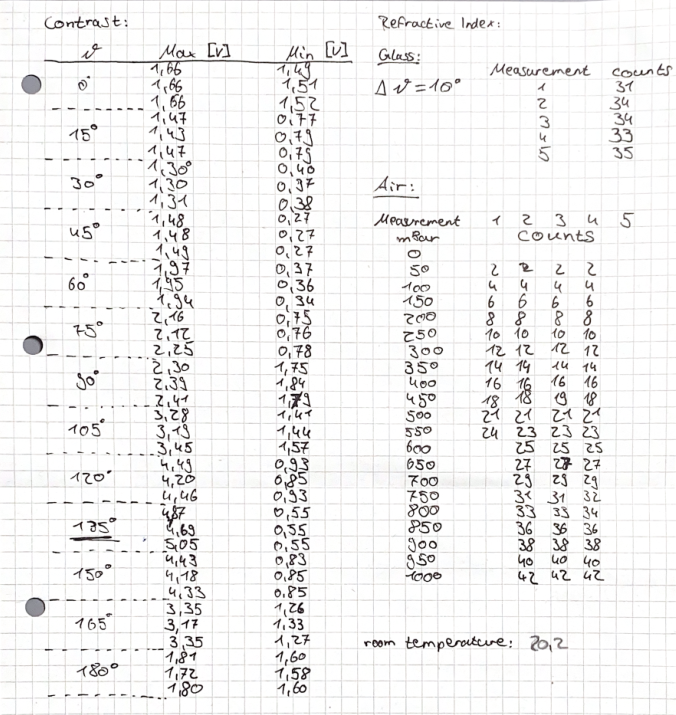 Contrast:
ϑ Max [V] Min [V]
1,66 1,49
0° 1,66 1,51
1,66 1,52
1,47 0,77
15° 1,43 0,79
1,47 0,79
1,30 0,40
30° 1,30 0,37
1,31 0,38
1,48 0,27
45° 1,48 0,27
1,49 0,27
1,97 0,37
60° 1,95 0,36
1,94 0,34
2,16 0,75
75° 2,12 0,76
2,25 0,78
2,30 1,75
90° 2,39 1,84
2,41 1,79
3,28 1,41
105° 3,19 1,44
3,45 1,57
4,49 0,93
120° 4,20 0,85
4,46 0,93
4,87 0,55
135° 4,69 0,55
5,05 0,55
4,43 0,83
150° 4,18 0,85
4,33 0,85
3,35 1,26
165° 3,17 1,33
3,35 1,27
1,81 1,60
180° 1,72 1,58
1,80 1,60
Refractive Index:
Glass:
Δϑ=10°
Measurement counts
1 31
2 34
3 34
4 33
5 35
Air:
Measurement 1 2 3 4 5
mBar counts
0
50 2 2 2 2
100 4 4 4 4
150 6 6 6 6
200 8 8 8 8
250 10 10 10 10
300 12 12 12 12
350 14 14 14 14
400 16 16 16 16
450 18 18 19 18
500 21 21 21 21
550 24 23 23 23
600 25 25 25
650 27 27 27
700 29 29 29
750 31 31 32
800 33 33 34
850 36 36 36
900 38 38 38
950 40 40 40
1000 42 42 42
room temperature: 20,2